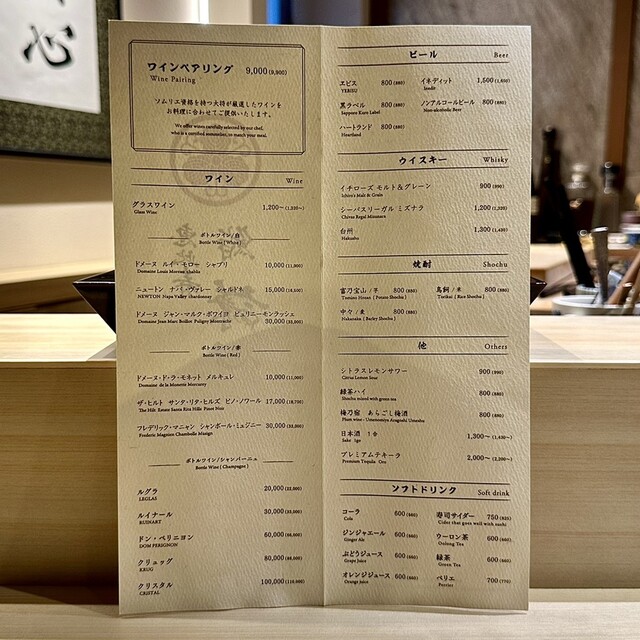 心
ワインペアリング 9,000(9,900)
Wine Pairing
ソムリエ資格を持つ大将が厳選したワインを
お料理に合わせてご提供いたします。
We offer wines carefully selected by our chef,
who is a certified sommelier, to match your meal.
ワイン Wine
グラスワイン 1,200~(1,320~)
Glass Wine
ボトルワイン/白
Bottle Wine ( White )
ドメーヌ ルイ・モロー シャブリ 10,000(11,000)
Domaine Louis Moreau chablis
ニュートン ナパ・ヴァレー シャルドネ 15,000(16,500)
NEWTON Napa Valley chardonnay
ドメーヌ ジャン・マルク・ボワイヨ ピュリニーモンラッシェ
Domaine Jean Marc Boillot Puligny Montrachet 30,000(33,000)
ボトルワイン/赤
Bottle Wine ( Red )
ドメーヌ・ド・ラ・モネット メルキュレ 10,000(11,000)
Domaine de la Monette Mercurey
ザ・ヒルト サンタ・リタ・ヒルズ ピノ・ノワール 17,000(18,700)
The Hilt Estate Santa Rita Hills Pinot Noir
フレデリック・マニャン シャンボール・ミュジニー 30,000(33,000)
Frederic Magnien Chambolle Musigny
ボトルワイン/シャンパーニュ
Bottle Wine ( Champagne )
ルグラ 20,000(22,000)
LEGLAS
ルイナール 30,000(33,000)
RUINART
ドン・ペリニヨン 60,000(66,000)
DOM PERIGNON
クリュッグ 80,000(88,000)
KRUG
クリスタル 100,000(110,000)
CRISTAL
ビール Beer
ヱビス 800(880)
YEBISU
イネディット 1,500(1,650)
Inedit
黒ラベル 800(880)
Sapporo Kuro Label
ノンアルコールビール 800(880)
Non-alcoholic Beer
ハートランド 800(880)
Heartland
ウイスキー Whisky
イチローズ モルト&グレーン 900(990)
Ichiro's Malt & Grain
シーバスリーガル ミズナラ 1,200(1,320)
Chivas Regal Mizunara
白州 1,300(1,430)
Hakushu
焼酎 Shochu
富乃宝山/芋 800(880)
Tomino Hozan ( Potato Shochu )
鳥飼/米 800(880)
Torikai ( Rice Shochu )
中々/麦 800(880)
Nakanaka ( Barley Shochu )
他 Others
シトラスレモンサワー 900(990)
Citrus Lemon Sour
緑茶ハイ 800(880)
Shochu mixed with green tea
梅乃宿 あらごし梅酒 800(880)
Plum wine - Umenoyado Aragoshi Umeshu
日本酒 1合 1,300~(1,430~)
Sake 1go
プレミアムテキーラ 2,000~(2,200~)
Premium Tequila One
ソフトドリンク Soft drink
コーラ 600(660)
Cola
寿司サイダー 750(825)
Cider that goes well with sushi
ジンジャエール 600(660)
Ginger Ale
ウーロン茶 600(660)
Oolong Tea
ぶどうジュース 600(660)
Grape Juice
緑茶 600(660)
Green Tea
オレンジジュース 600(660)
Orange juice
ペリエ 700(770)
Perrier